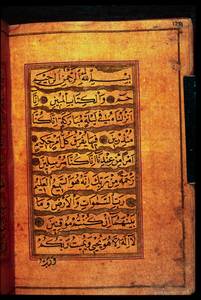 بسم الله الرحمن الرحيم
حم والكتاب المبين انا
انزلناه في ليلة مباركة انا كنا
منذرين فيها يفرق كل امر حكيم
امرا من عندنا انا كنا مرسلين
رحمة من ربك انه هو السميع العليم
رب السموات والارض وما
بينهما ان كنتم موقنين
لا اله الا هو يحيي ويميت ربكم